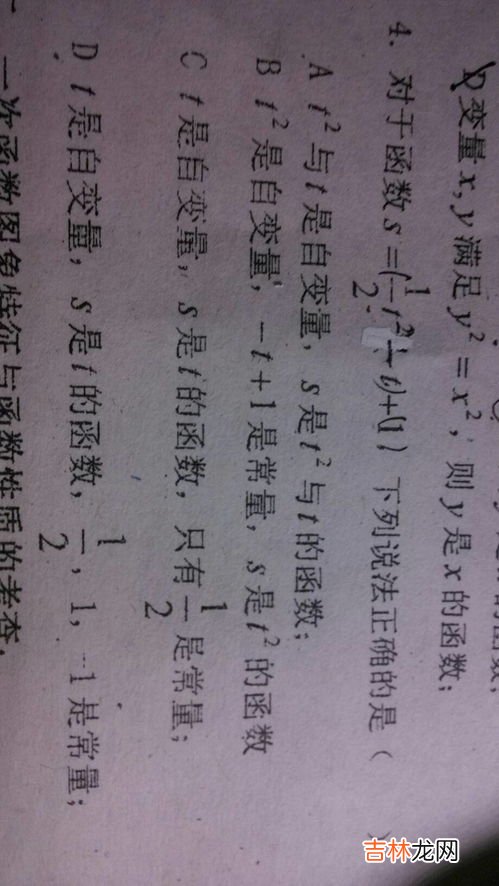 D 变量x,y满足y²=x²，则y是x的函数；
4. 对于函数s=(1/2 t²-t)+(1) 下列说法正确的是（
A t²与t是自变量，s是t²与t的函数；
B t²是自变量，-t+1是常量，s是t²的函数
C t是自变量，s是t的函数，只有1/2是常量；
D t是自变量，s是t的函数，1/2，1，-1是常量；
一次函数图象特征与函数性质的考查.
吉林龙网